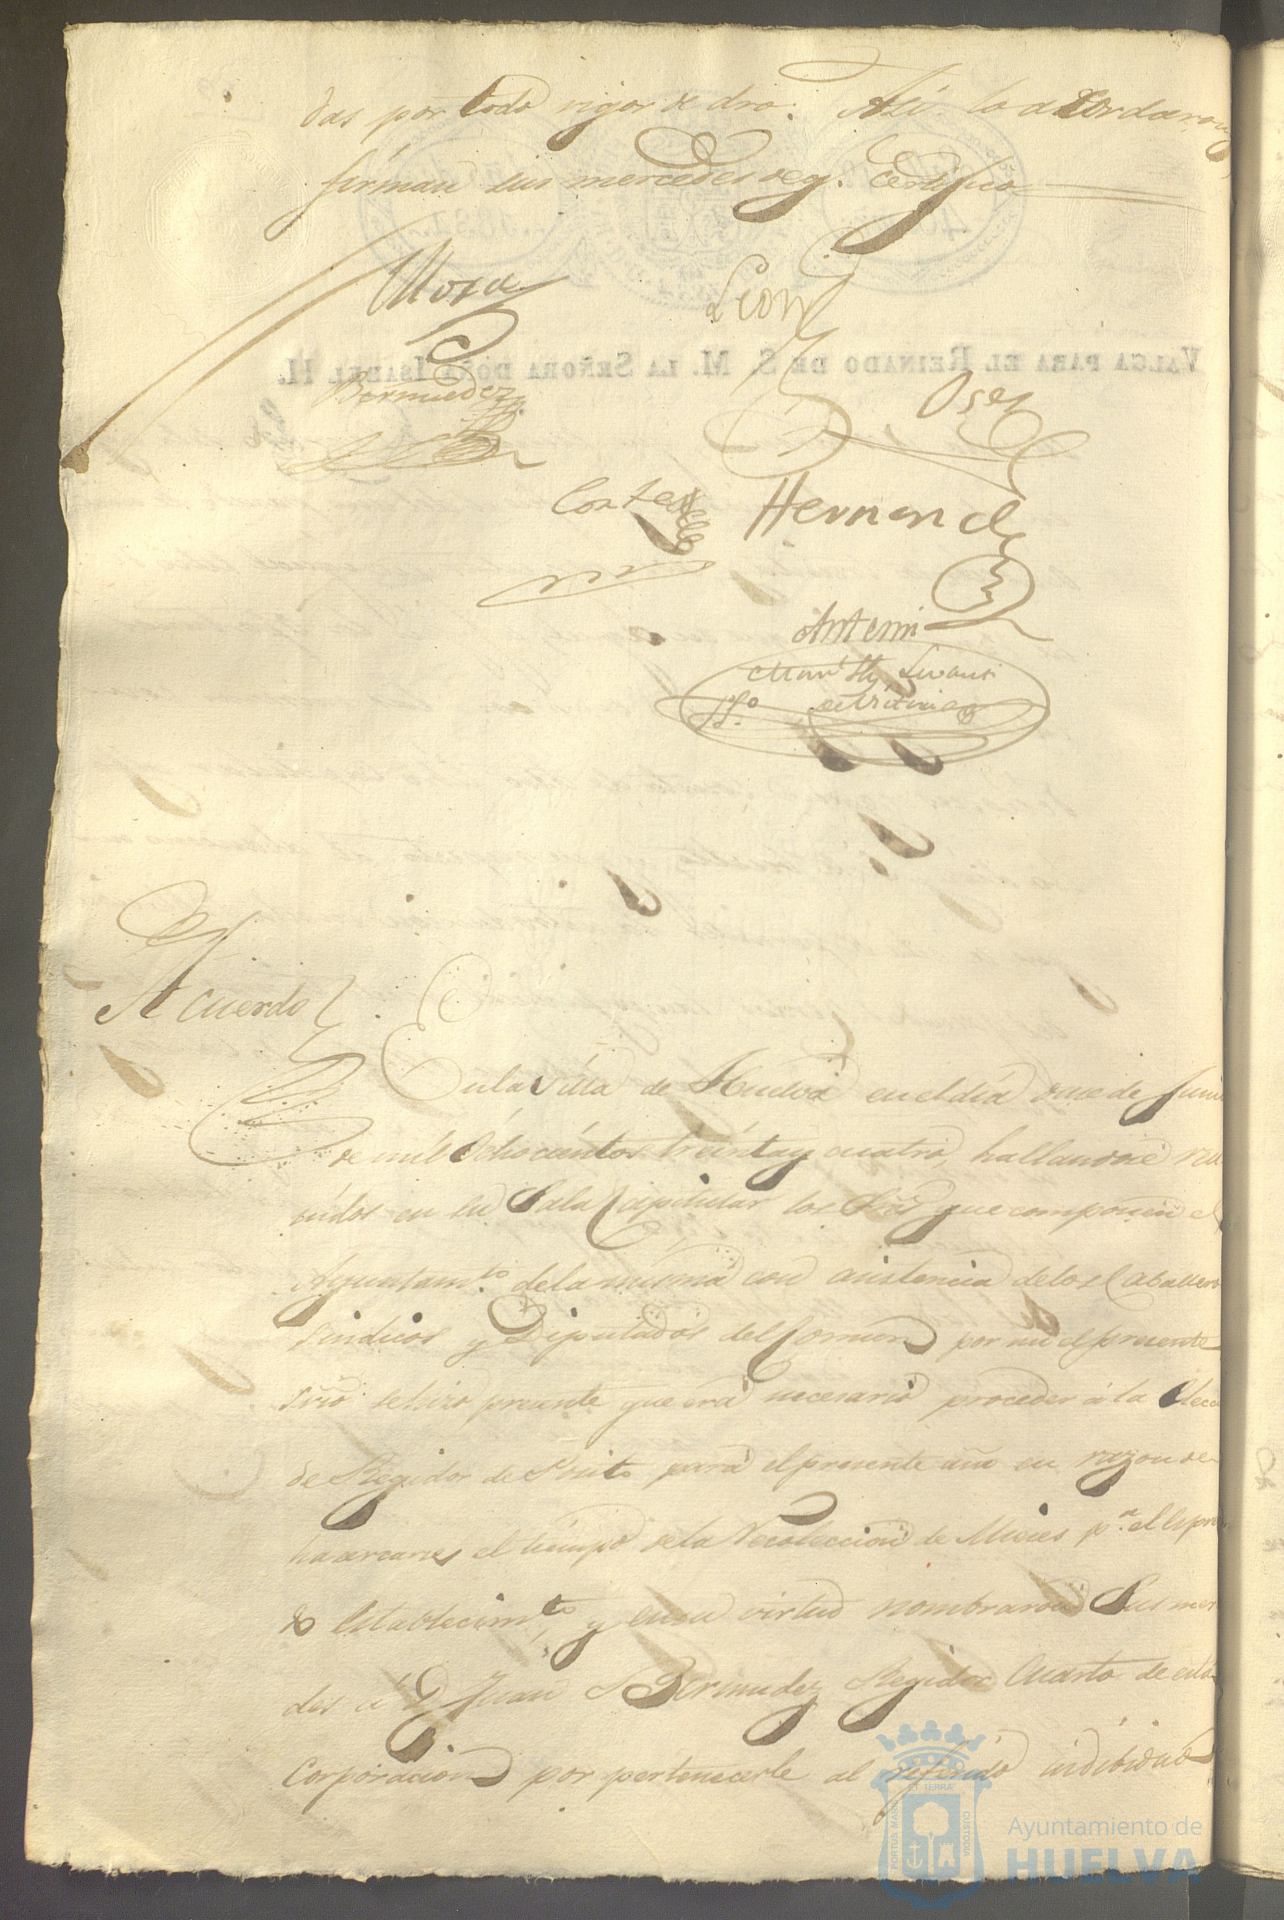 das por todo vigor de dro. Asi lo acordaron y
firman sus mercedes de q. Certifico
Mora
Leon
VALGA PARA EL REINADO DE S. M. LA SEÑORA DOÑA ISABEL II.
Bermudez
Cortes
Hernand
Antemi
Acuerdo
En la Villa de Huelva en el dia once de Junio
de mil Ochocientos treinta y cuatro, hallandose reu
nidos en su Sala Capitular los Sres que componen el
Ayuntamto. de la misma con asistencia de los Caballeros
Sindicos y Diputados del Comun por mi el presente
Srio se hizo presente que era necesario proceder á la Elecc
de Regidor de Posito para el presente año en razon de
hacercarse el tiempo de la Recoleccion de Mieses pa. el
Establecimto, y en su virtud nombraron Sus mer
des á D Juan Bermudez Regidor Cuarto de esta
Corporacion por pertenecerle al referido indibiduo
PORTUS MARIS ET TERRAE CUSTODIA
Ayuntamiento de
HUELVA